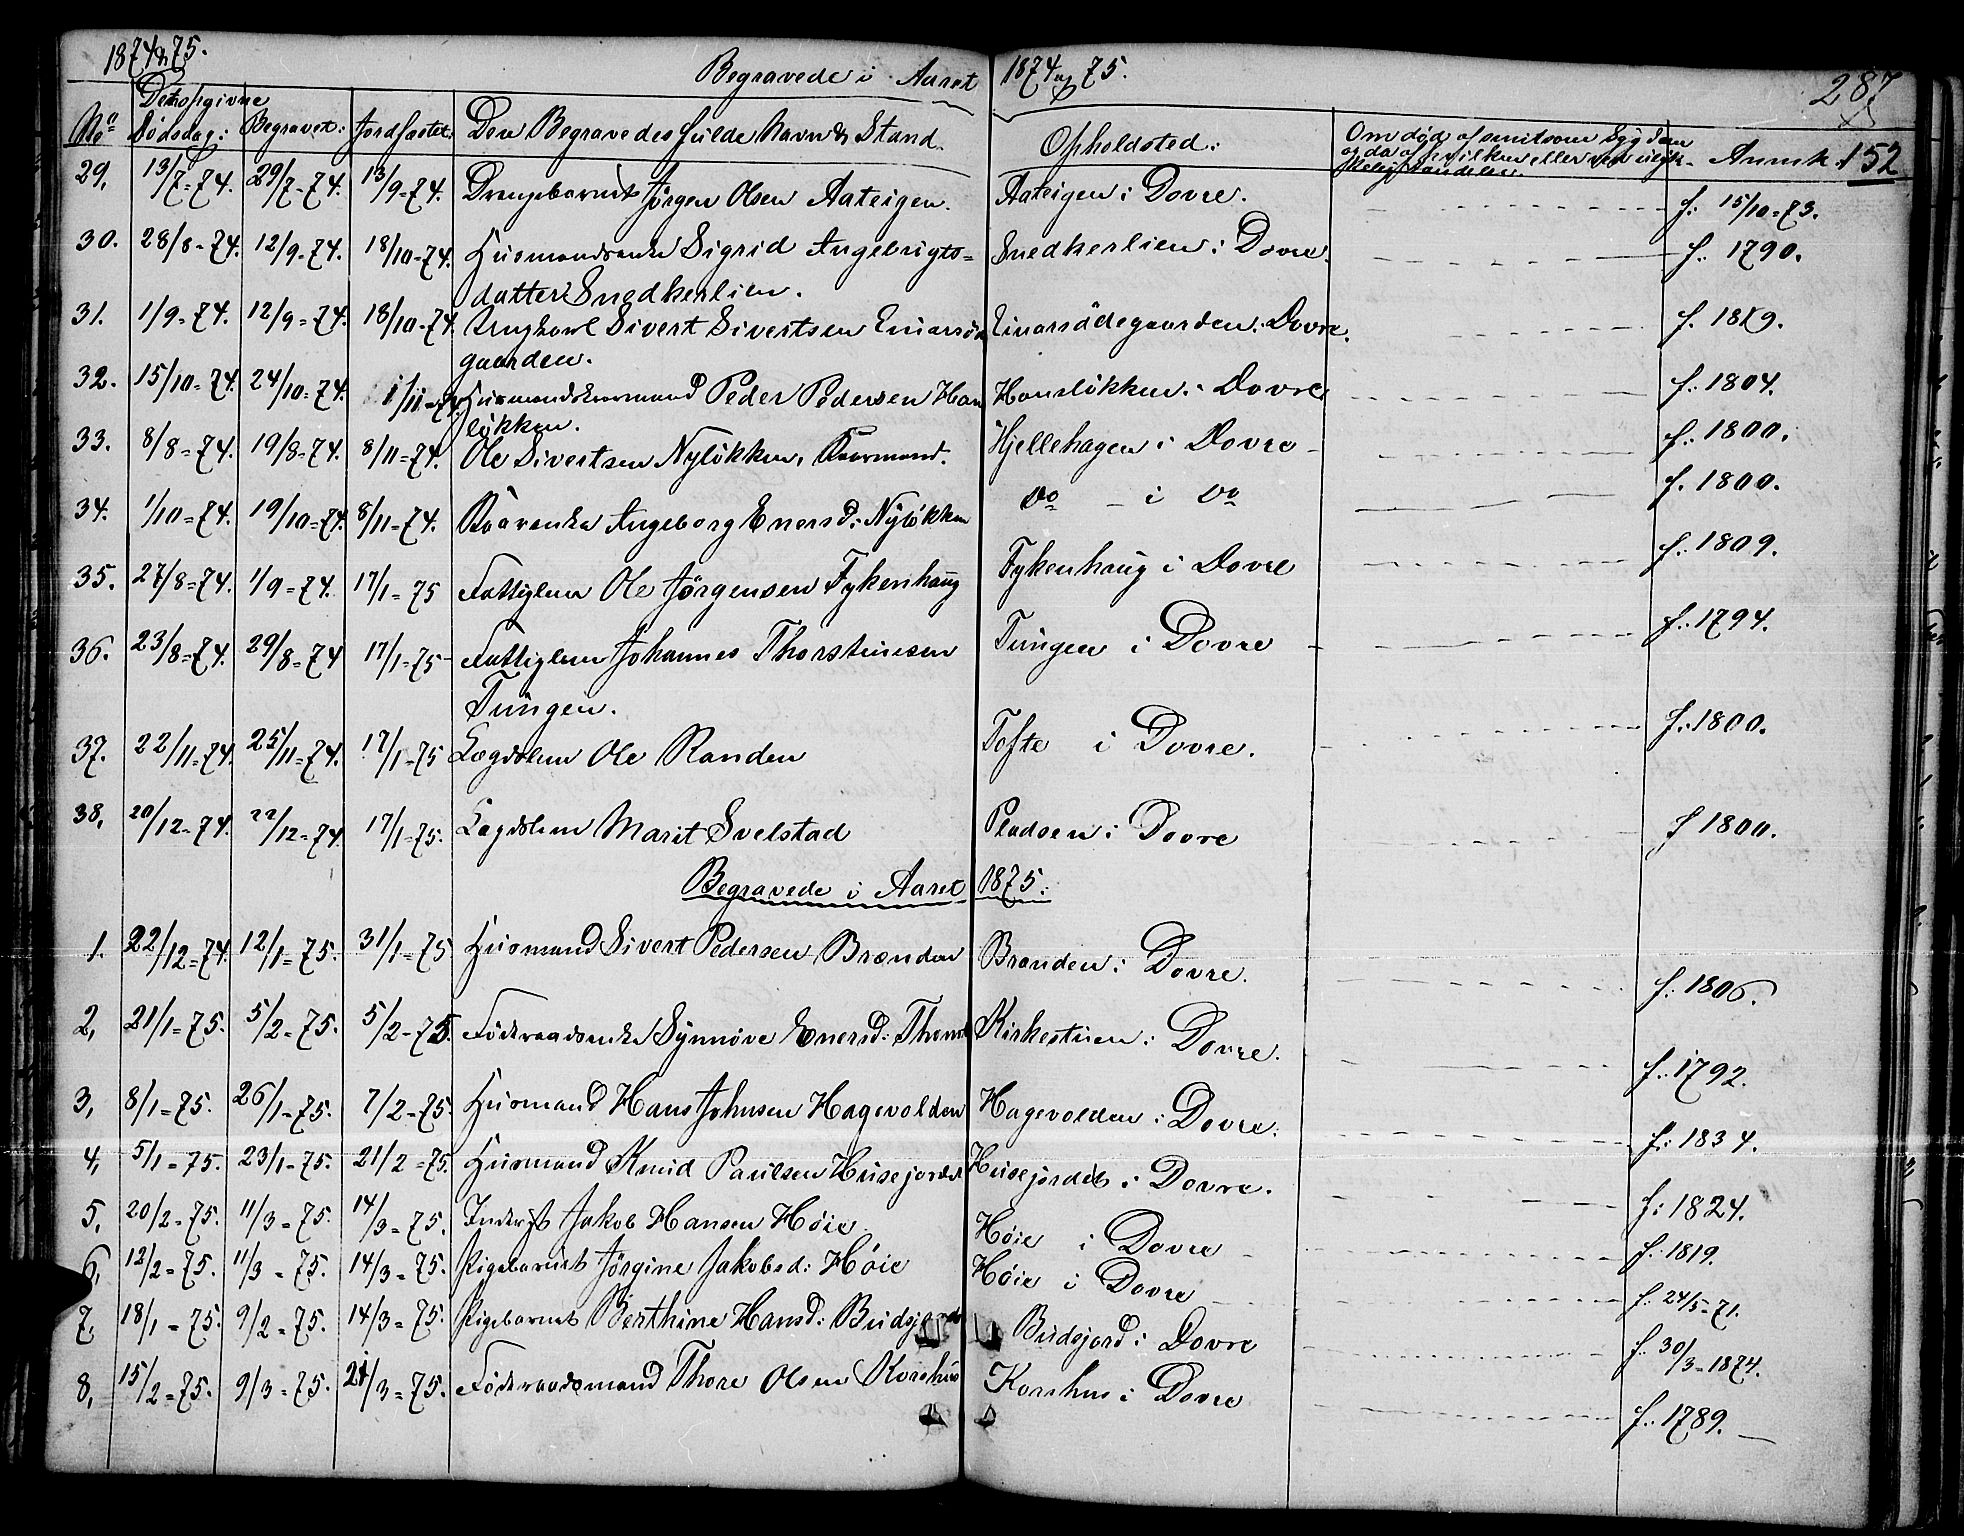 1874 & 75.
Begravede i Aaret 1874 og 75.
287
152
No Den opgivne Dødsdag: Begravet: Jordfæstet: Den Begravedes fulde Navn & Stand. Opholdsted: Om død af smitsom Sygdom Anmk.
29, 13/7=74. 29/7=74. 13/9=74. Drengebarnet Jørgen Olsen Aateigen. Aateigen i Dovre. f: 15/10=73.
30. 28/8=74. 12/9=74. 18/10=74. Husmandsenke Sigrid Angebrigts=
datter Snedkerlien. Snedkerlien i Dovre. f. 1790.
31. 1/9=74. 12/9=74. 18/10=74. Ungkarl Sivert Sivertsen Einarsøde
gaarden. Einarsødegaarden i Dovre. f. 1819.
32. 15/10=74. 24/10=74. 1/11=74. Husmandskaarmand Peder Pedersen Hans
løkken. Hansløkken i Dovre f. 1804.
33. 8/8=74. 19/8=74. 8/11=74. Ole Sivertsen Nyløkken, Kaarmand. Hjellehagen i Dovre f. 1800.
34. 1/10=74. 19/10=74. 8/11=74. Kaarenke Angeborg Enersd: Nyløkken do i do f. 1800.
35. 27/8=74. 1/9=74. 17/1=75 Fattiglem Ole Jørgensen Fykenhaug Fykenhaug i Dovre f. 1809.
36. 23/8=74. 29/8=74 17/1=75 Fattiglem Johannes Thorsteinsen
Tungen. Tungen i Dovre f. 1794.
37. 22/11=74. 25/11=74. 17/1=75 Lægdslem Ole Randen Tofte i Dovre. f. 1800.
38, 20/12=74. 22/12=74. 17/1=75. Lægdslem Marit Svelstad Pladsen i Dovre f 1800.
Begravede i Aaret 1875.
1. 22/12=74. 12/1=75. 31/1=75 Husmand Sivert Pedersen Brænden Brænden i Dovre. f. 1806.
2, 21/1=75. 5/2=75. 5/2=75 Føderaadsenke Synnøve Enersd: Kirkestuen i Dovre. f. 1792.
3, 8/1=75. 26/1=75. 7/2=75. Husmand Hans Johnsen Hagevolden Hagevolden i Dovre. f. 1834.
4, 5/1=75. 23/1=75. 21/2=75. Husmand Knud Paulsen Husejordet Husejordet i Dovre. f: 1824.
5, 20/2=75. 11/3=75. 14/3=75. Inderst Jakob Hansen Høie. Høie i Dovre f. 1819.
6, 12/2=75. 11/3=75. 14/3=75. Pigebarnet Jørgine Jakobsd: Høie Høie i Dovre f. 24/5=71.
7, 18/1=75. 9/2=75. 14/3=75. Pigebarnet Berthine Hansd: Budsjord Budsjord i Dovre f. 30/3=1874.
8, 15/2=75. 9/3=75. 21/3=75. Føderaadsmand Thore Olsen Korshus Korshus i Dovre f. 1789.